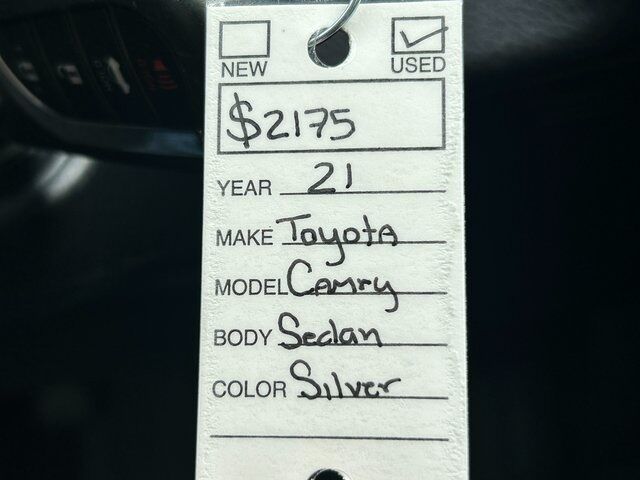 NEW USED
$2175
YEAR 21
MAKE Toyota
MODEL Camry
BODY Sedan
COLOR Silver